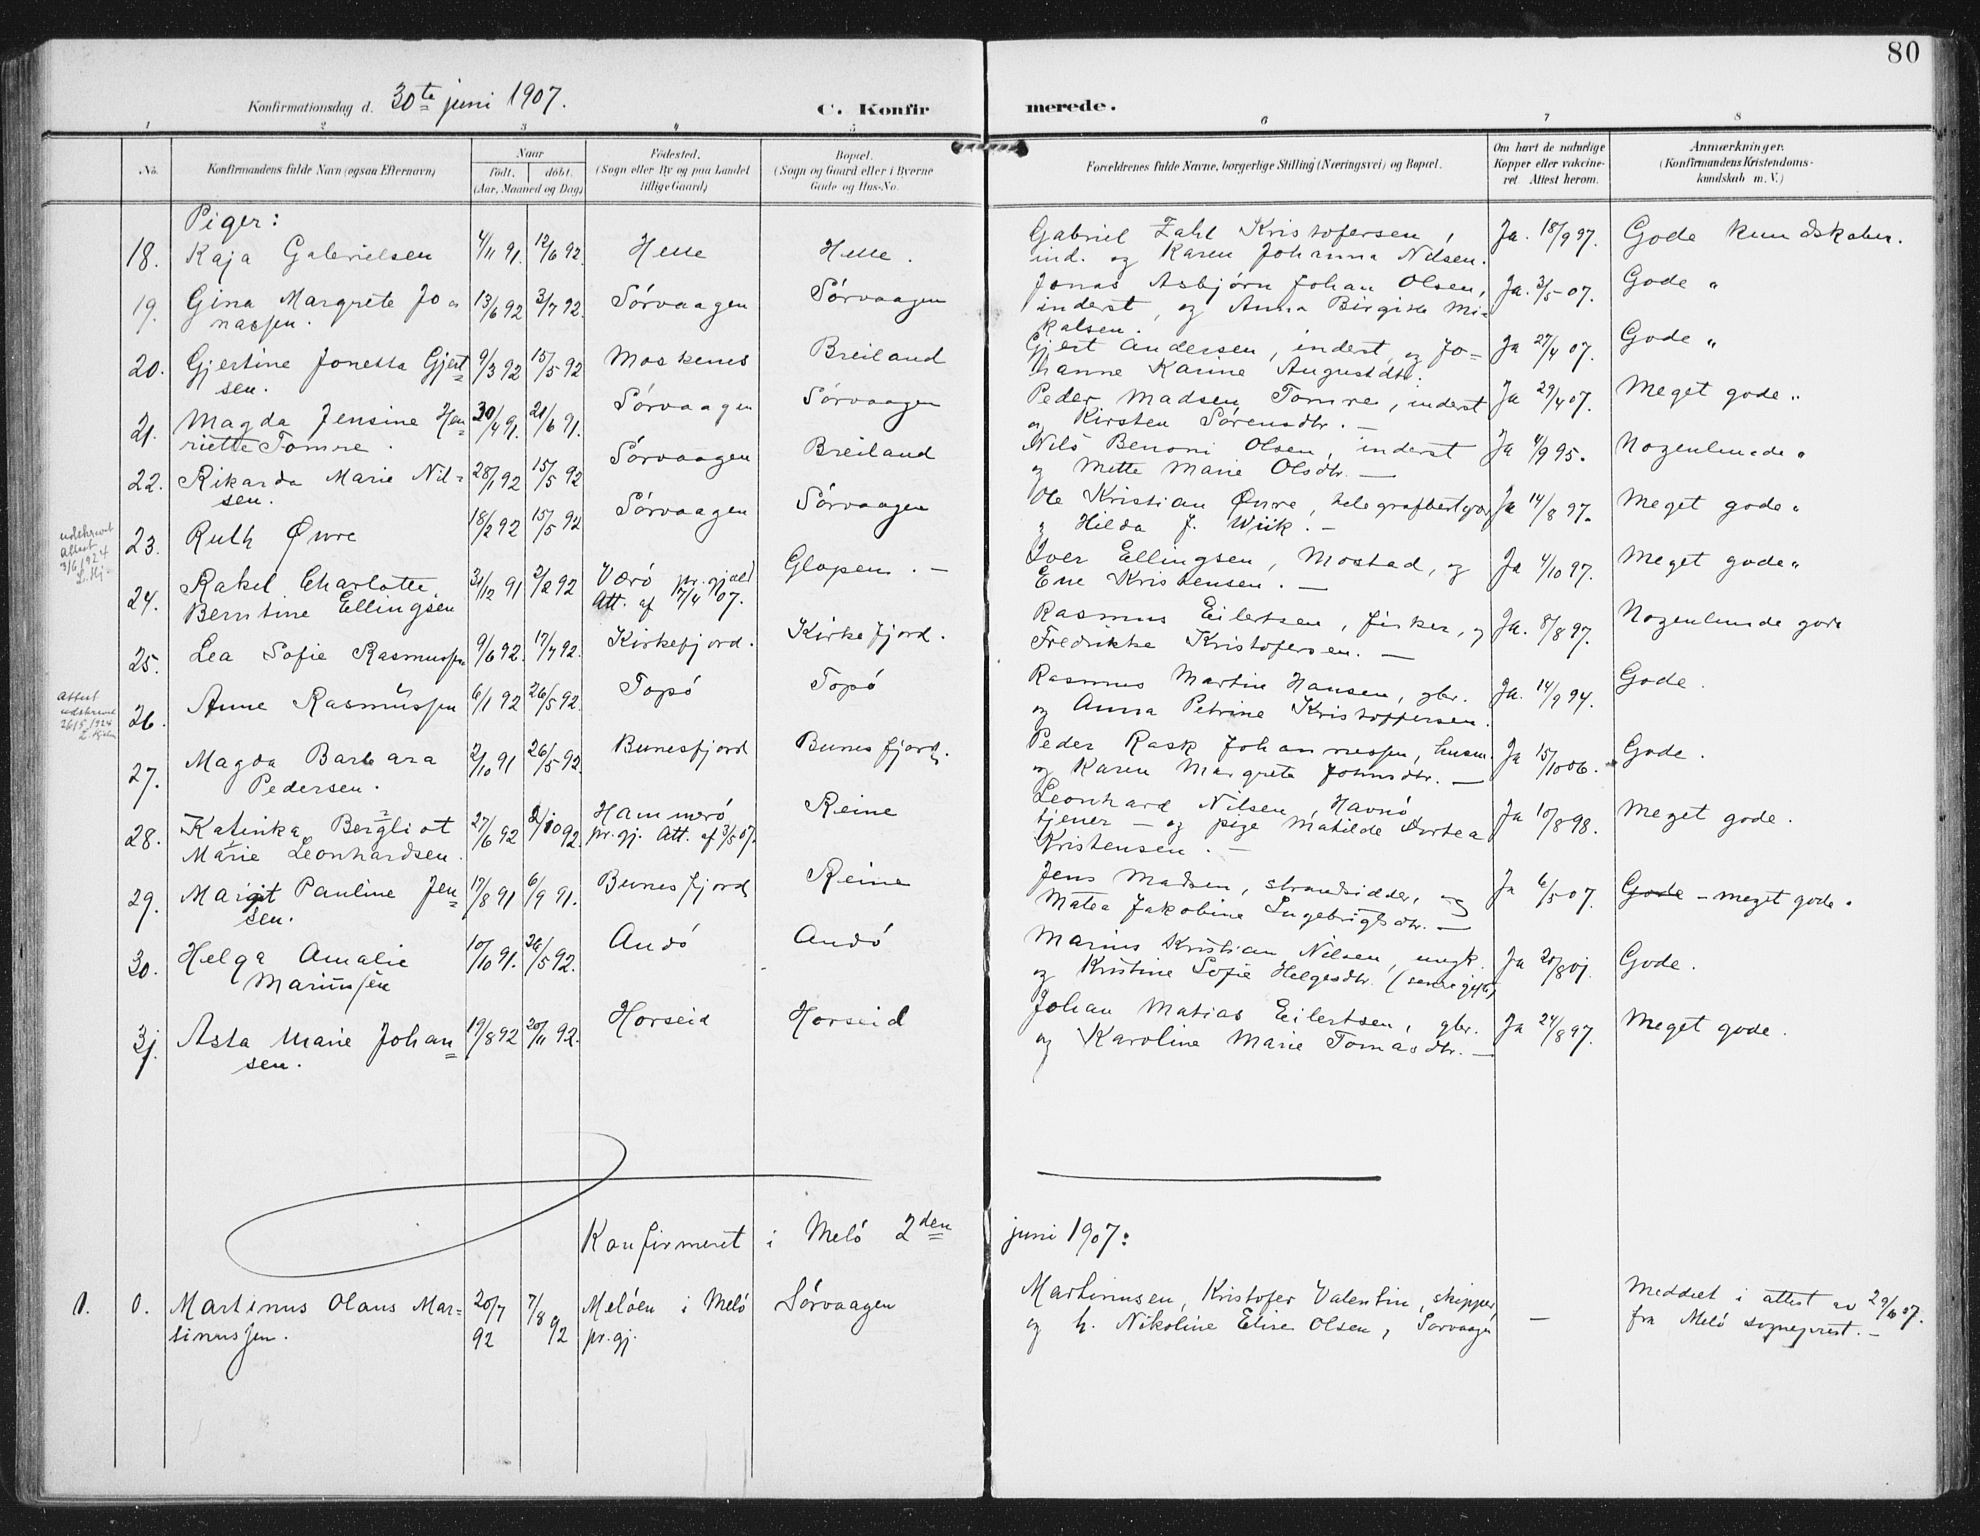 80
Konfirmationsdag d. 30te juni 1907.
C. Konfirmerede.
1 2 3 4 5 6 7 8
No.
Konfirmandens fulde Navn (ogsaa Efternavn)
Naar
født. døbt.
(Aar, Maaned og Dag)
Fødested.
(Sogn eller By og paa Landet
tillige Gaard)
Bopæl.
(Sogn og Gaard eller i Byerne
Gade og Hus-No.
Forældrenes fulde Navne, borgerlige Stilling (Næringsvei) og Bopæl.
Om havt de naturlige
Kopper eller vakcine-
ret Attest herom.
Anmærkninger.
(Konfirmandens Kristendoms-
kundskab m. V.)
Piger:
18. Kaja Gabrielsen 4/11 91. 12/6 92. Helle Helle.
Gabriel Zahl Kristofersen,
ind. og Karen Johanna Nilsen.
Ja. 18/9 97. Gode kundskaber.
19. Gina Margrete Jo=
nassen. 13/6 92 3/7 92. Sørvaagen Sørvaagen
Jonas Asbjørn Johan Olsen,
inderst, og Anna Birgitte Mi-
kalsen.
Ja. 3/5 07. Gode "
20. Gjertine Jonetta Gjert=
sen. 9/3 92 15/5 92 Moskenes Breiland
Gjert Andersen, inderst, og Jo-
hanne Karine Augustdtr.
Ja 27/4 07. Gode "
21. Magda Jensine Hen=
riette Tomre. 30/4 91. 21/6 91. Sørvaagen Sørvaagen
Peder Madsen Tomre, inderst
og Kirsten Sørensdtr. -
Ja 29/4 07. Meget gode "
22. Rikarda Marie Nil-
sen. 28/1 92 15/5 92 Sørvaagen Breiland
Nils Benoni Olsen, inderst
og Mette Marie Olsdtr. -
Ja 4/9 95. Nogenlunde "
udskrevet
attest
3/6 1924
L. Hj.
23. Ruth Øvre 18/2 92 15/5 92 Sørvaagen Sørvaagen
Ole Kristian Øvre, telegrafbestyrer
og Hilda J. Wiik. -
Ja 14/8 97. Meget gode "
24. Rakel Charlotte
Berntine Ellingsen 31/12 91 2/2 92 Værø pr.gjeld
Att. af 17/4 07. Glapen. -
Iver Ellingsen, Mostad, og
Ene Kristensen. -
Ja 4/10 97. Meget gode "
25. Lea Sofie Rasmussen 9/6 92. 17/7 92. Kirkefjord. Kirkefjord.
Rasmus Eilertsen, fisker, og
Fredrikke Kristofersen. -
Ja. 8/8 97. Nogenlunde gode
attest
udskrevet
26/5 1924
26. Anne Rasmussen 6/1 92 26/5 92. Topø Topø
Rasmus Martin Hansen, gbr.
og Anna Petrine Kristoffersen.
Ja. 14/9 94. Gode.
27. Magda Barbara
Pedersen. 2/10 91 26/5 92. Bunesfjord Bunesfjord.
Peder Rask Johannessen, husm.
og Karen Margrete Johnsdtr. -
Ja 15/10 06. Gode.
28. Katinka Bergliot
Marie Leonhardsen. 27/6 92 2/10 92. Hammerø
pr.gj. Att. af 3/5 07. Reine
Leonhard Nilsen, Havnø
tjener - og pige Matilde Dortea
Kristensen. -
Ja 10/8 98. Meget gode.
29. Margit Pauline Jen=
sen. 17/8 91 6/9 91. Bunesfjord Reine
Jens Madsen, strandsidder, og
Matea Jakobine Ingebrigtsdtr. -
Ja 6/5 07. Gode - meget gode.
30. Helga Amalie
Mariussen 10/10 91. 26/5 92. Andø Andø
Marius Kristian Nilsen, ungk.
og Kristine Sofie Helgesdtr. (senere gifte)
Ja 20/8 01. Gode.
31. Asta Marie Johan=
sen. 19/8 92 20/11 92. Horseid Horseid
Johan Matias Eilertsen, gbr.
og Karoline Marie Tomasdtr. -
Ja 24/8 97. Meget gode.
Konfirmeret i Melø 2den juni 1907:
0. 0. Martinus Olaus Mar-
tinussen. 20/7 92 7/8 92 Meløen i Melø
pr.gj. Sørvaagen
Martinusen, Kristofer Valentin, skipper,
og h. Nikoline Elise Olsen, Sørvaagen
- Meddelt i attest av 29/6 07.
fra Melø sogneprest. -